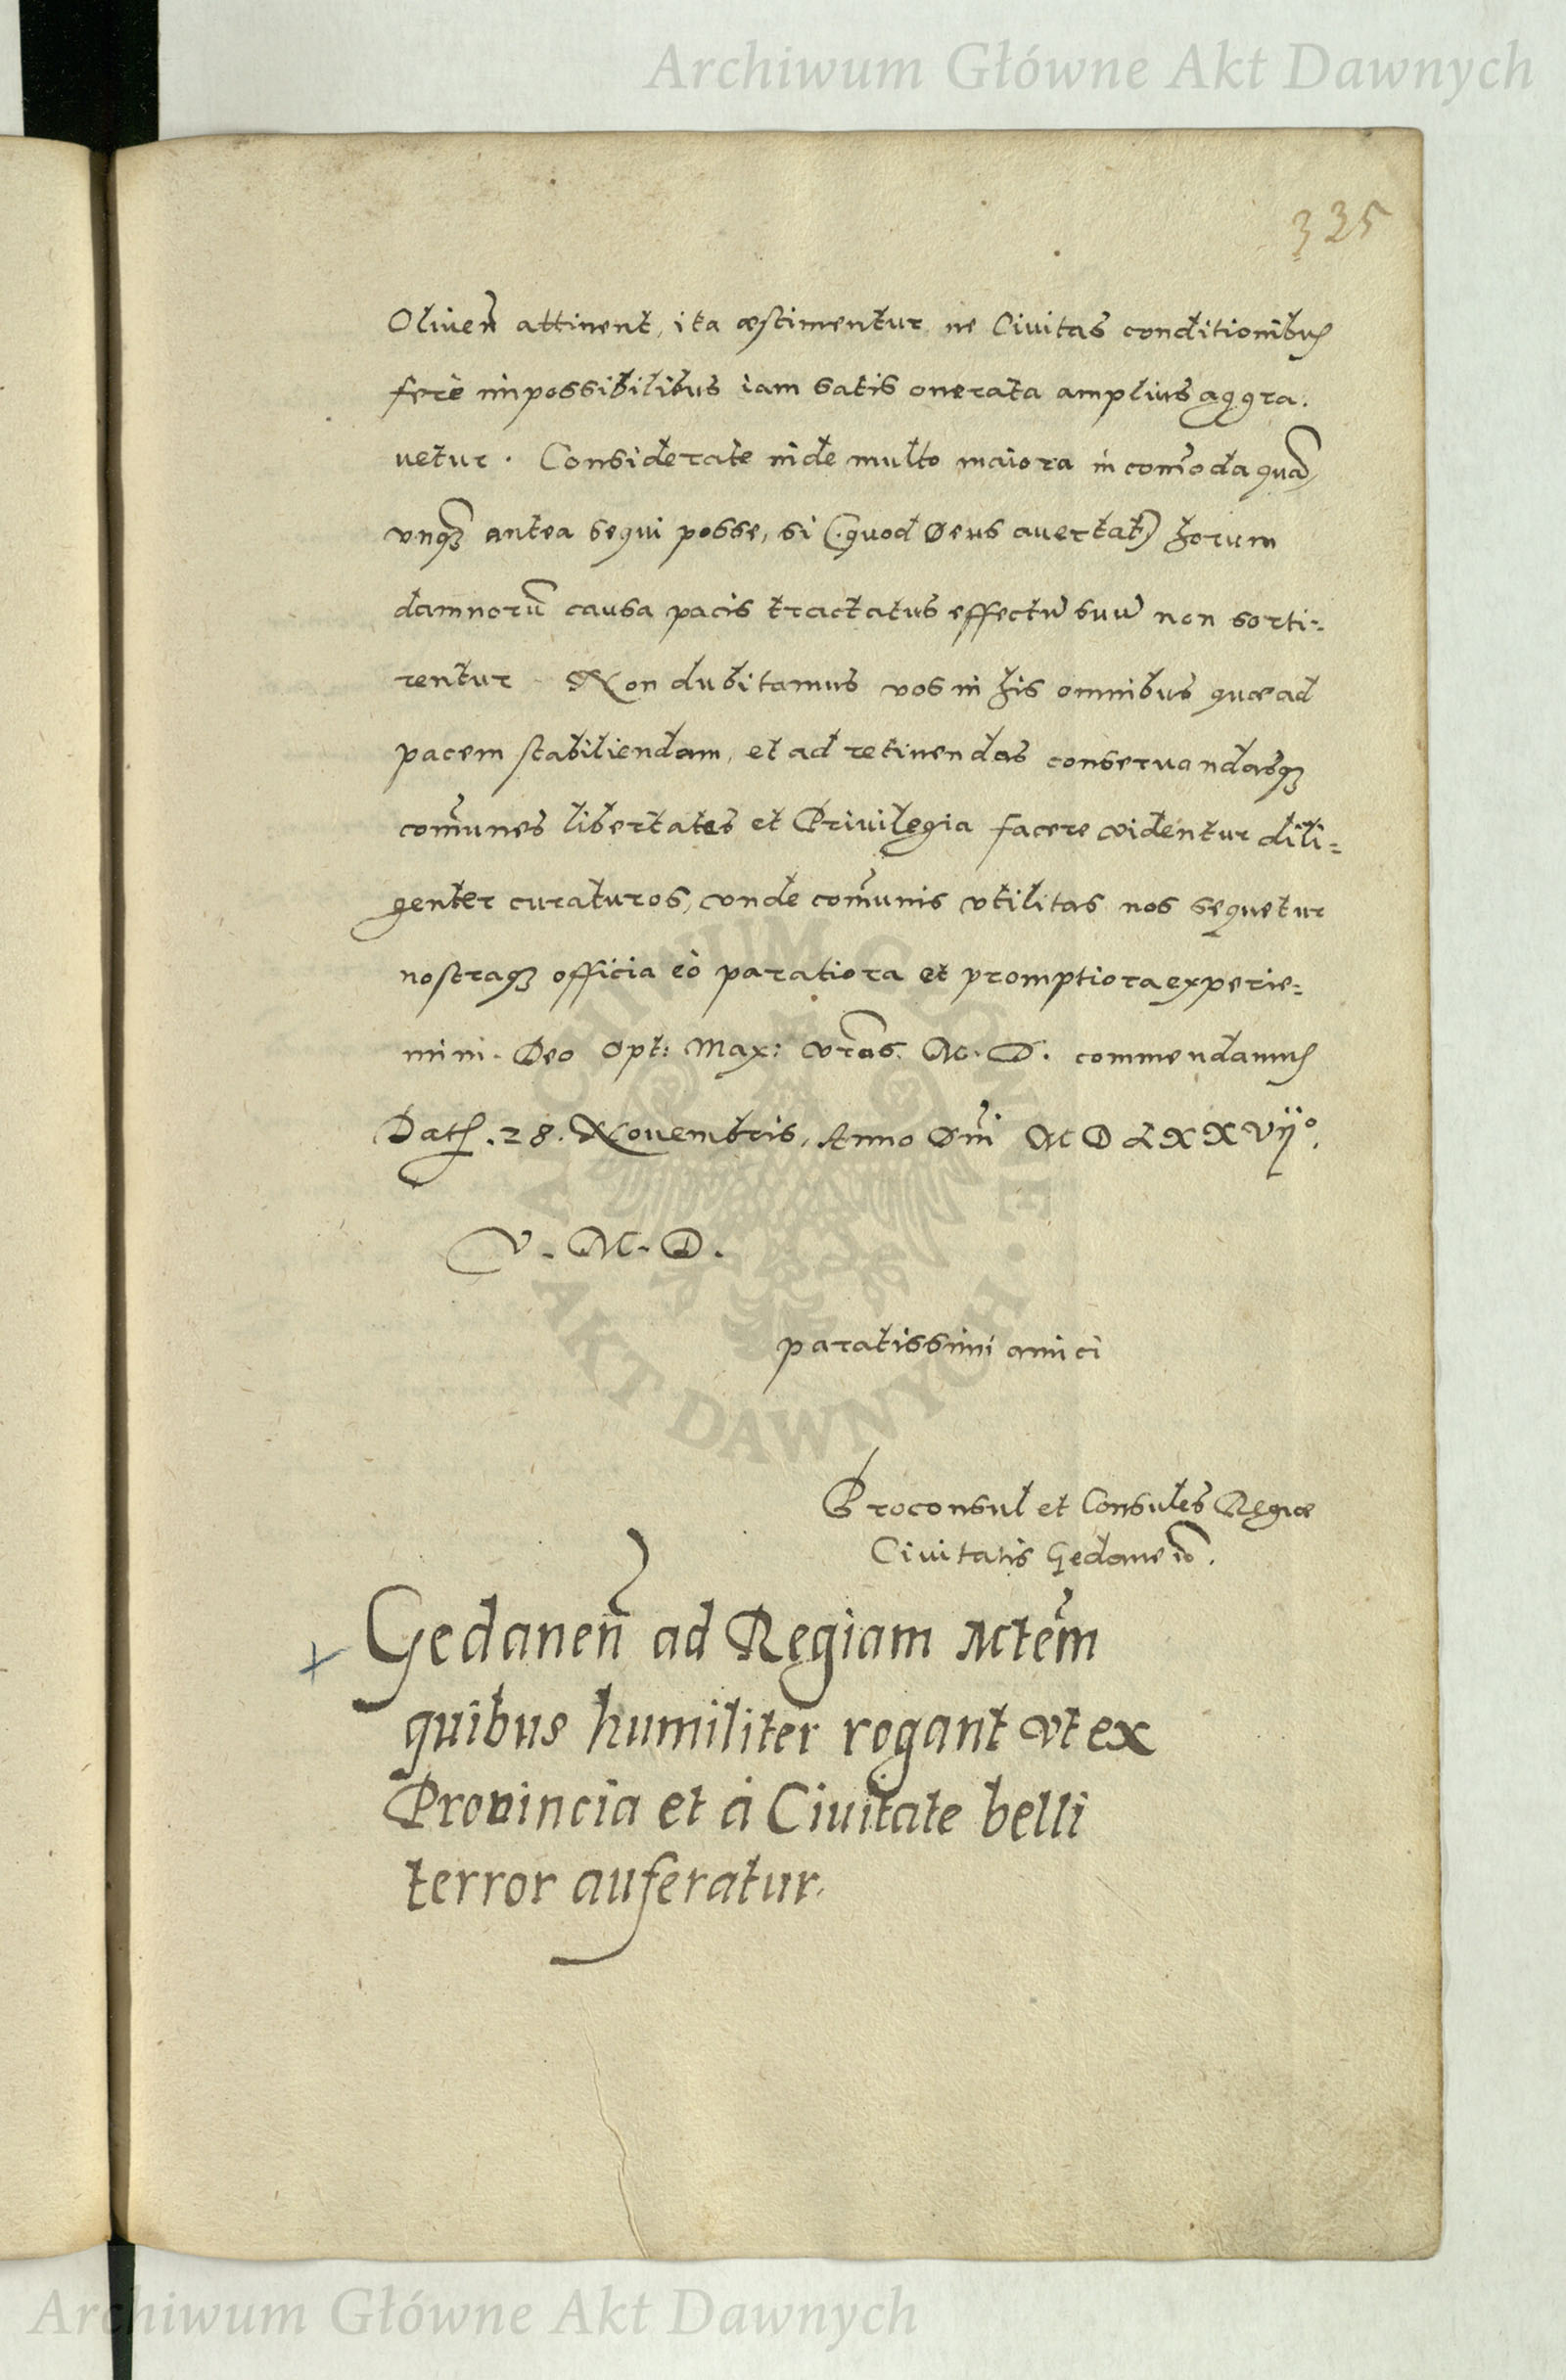 Archiwum Główne Akt Dawnych
335
Oliven̄ attinent, ita æstimentur ne Civitas conditionibus
ferè impossibilibus iam satis onerata amplius aggra:
uetur. Considerate inde multo maiora incom̄oda quā
vnq̃ antea sequi posse, si (quod Deus auertat) horum
damnorū causa pacis tractatus effectū suū non sorti:
rentur Non dubitamus vos in his omnibus quæ ad
pacem stabiliendam, et ad retinendas conseruandasq́
com̄unes libertates et Priuilegia facere videntur dili:
genter curaturos, vnde com̄unis vtilitas nos sequetur
nostraq́ officia eò paratiora et promptiora experie:
mini. Deo Opt: Max: vr̄as. M. D. commendamus
Dat. 28. Nouembris, Anno Dn̄i MDLXXVIJ°.
V. M. D.
paratissimi amici
Proconsul et Consules Regiæ
Ciuitatis Gedanen̄.
Gedanen̄ ad Regiam Mtem̄
quibus humiliter rogant vt ex
Provincia et à Ciuitate belli
terror auferatur.
ARCHIWUM GŁÓWNE AKT DAWNYCH
Archiwum Główne Akt Dawnych